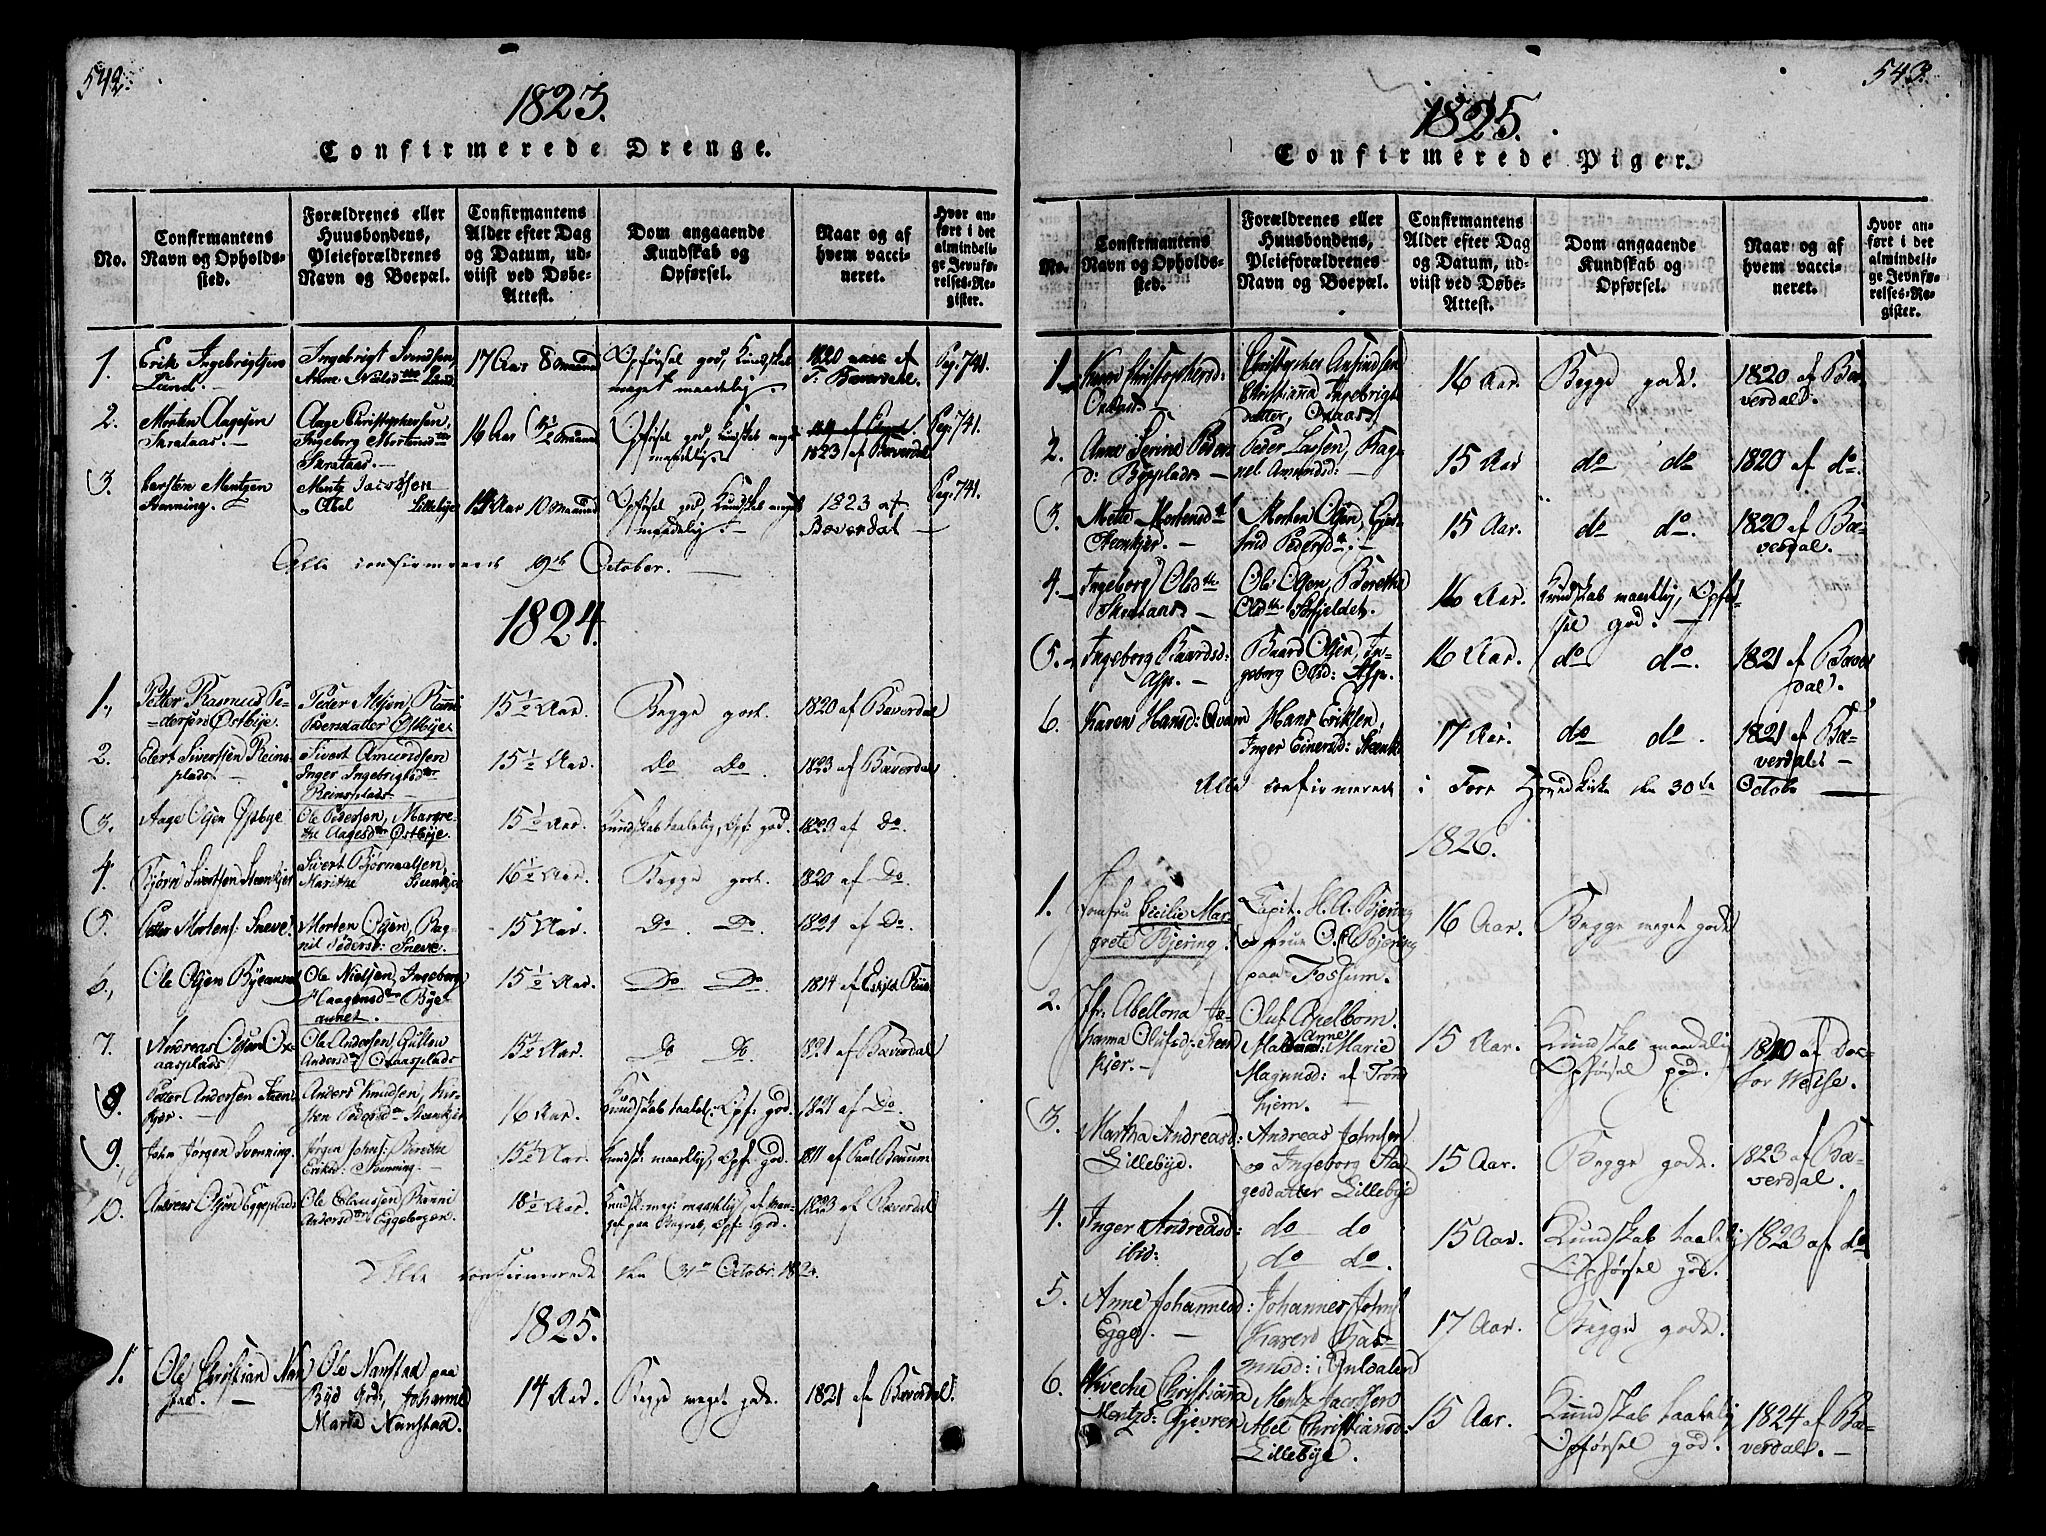 542.
1823.
Confirmerede Drenge.
No.
Confirmantens
Navn og Opholds-
sted.
Forældrenes eller
Huusbondens,
Pleieforældrenes
Navn og Boepæl.
Confirmantens
Alder efter Dag
og Datum, ud-
viist ved Døbe-
Attest.
Dom angaaende
Kundskab og
Opførsel.
Naar og af
hvem vacci-
neret.
Hvor an-
ført i det
almindeli-
ge Jevnfø-
relses-Re-
gister.
1. Erik Ingebrigtsen
Lund. Ingebrigt Svendsen,
Anne Nielsd Lund. 17 Aar 8 Maaned Opførsel god, Kundskab
meget maadelig. 1820 af
Bæverdal. Pag. 741.
2. Morten Aagesen
Skrataas. Aage Christophersen,
Ingeborg Mortensd
Skrataas. 16 Aar Maaned Opførsel god, Kundskab meget
maadelig.
1823 af Bæverdal Pag. 741.
3. Carsten Mentzen
Svenning. Mentz Jacobsen
Abel Lillebye 10 Maaned Opførsel god, Kundskab meget
maadelig. 1823 af
Bæverdal Pag. 741.
Alle confirmerede 19de October.
1824.
1. Petter Rasmus Pe-
dersen Østbye. Peder Olsen, Ranni
Østbye. 15 1/2 Aar. Begge godt. 1820 af Bæverdal
2. Elert Sivertsen Reins-
plads. Sivert Amundsen
Inger Ingebrigtsd
Reinsplads. 15 1/2 Aar. Do Do. 1823 af Bæverdal
3. Aage Olsen Østbye Ole Pedersen, Margre-
the Aagesd Østbye. 15 1/2 Aar. Kundskab taalelig, Opf: god. 1823 af Do.
4. Bjørn Sivertsen Steenkjer Sivert Bjørnsen,
Marithe Steenkjer 16 1/2 Aar. Begge godt. 1820 af Do.
5. Petter Mortens: Sneve. Morten Olsen, Rag-
nil Sneve. 15 1/2 Aar. Do. Do. 1821 af Do
6. Ole Olsen Byeaunet Ole Nielsen, Ingeborg
Haagensd Bye-
aunet. 15 1/2 Aar. Do Do. 1814 af
7. Andreas Olsen O-
aasplads Ole Andersen, Gullou
Andersd Olaasplads 15 1/2 Aar. Do Do. 1821 af Bæverdal
8. Petter Andersen Steen-
kjer. Anders Knudsen, Kir-
sten Pedersd Steenkjer 16 Aar. Kundskab taalel: Opf: god. 1821 af Do.
9. John Jørgen Svenning. Jørgen Johns: Berethe
Eriksd: Svenning. 15 1/2 Aar. Kundsk: maadelig, Opf: god. 1811 af Paul Baum
10. Andreas Olsen Eggeplads Ole Clausen, Ranni
Andersd Eggebogen. 18 1/2 Aar. Kundsk: maadelig, af Man-
gel paa Begreb, Opf: god. 1823 af Bæverdal
Alle confirmerede den 31te Octobr: 1824.
1825.
1. Ole Christian Nan-
stad. Ole Nanstad paa
Bye Grd, Johanne
Maria Nanstad. 14 Aar. Begge meget gode. 1821 af Bæverdal.
543.
1825.
Confirmerede Piger.
No.
Confirmantens
Navn og Opholds-
sted.
Forældrenes eller
Huusbondens,
Pleieforældrenes
Navn og Boepæl.
Confirmantens
Alder efter Dag
og Datum, ud-
viist ved Døbe-
Attest.
Dom angaaende
Kundskab og
Opførsel.
Naar og af
hvem vacci-
neret.
Hvor an-
ført i det
almindeli-
ge Jevnfø-
relses-Re-
gister.
1. Karen Christophersd:
Oxaas. Christopher
Christianna Ingebrigts-
datter, Oxaas. 16 Aar. Begge gode. 1820 af Bæ-
verdal.
2. Anne Serine Peders-
d: Byeplads. Peder Larsen, Rag-
nel Amundsd: 15 Aar do do 1820 af do.
3. Mette Mortensd
Steenkjer. Morten Olsen, Gjer-
trud Pedersd 15 Aar. do do. 1820 af Bæ-
verdal.
4. Ingeborg Olsd
Skrataas. Ole Olsen, Berethe
Olsd 16 Aar. Kundskab maadelig, Opfør-
sel god.
5. Ingeborg Baardsd:
Asp. Baard Olsen, In-
geborg Olsd: Asp. 16 Aar. do do. 1821 af Bæver-
dal.
6. Karen Hansd: Hans Eriksen,
Inger Einersd: Steenk: 17 Aar. do do. 1821 af Bæ-
verdal.
Alle confirmerede i For Hovedkirke den 30te Octob:
1826.
1. Jomfru Cecilie Mar-
grete Bjering. Capit. H. A. Bjering
og Frue Bjering
paa Fossum. 16 Aar. Begge meget gode
2. Jfr: Abellona Jo-
hanna Olufsd: Steen-
kjer. Oluf Apelbom.
Anne Marie
Magnusd: af Trond-
hjem. 15 Aar. Kundskab maadelig
Opførsel god. 1810 af Doc-
tor Weise.
3. Martha Andreasd:
Lillebye. Andreas Johnsen
og Ingeborg Aa-
gesdatter Lillebye 15 Aar. Begge gode. 1823 af Bæ-
verdal.
4. Inger Andreasd:
ibid: do do
do do. 15 Aar. Kundskab taalelig
Opførsel god. 1823 af do
5. Anne Johannesd:
Egge. Johannes Johns:
Karen Ras-
musd: i Guldalen 17 Aar. Begge gode.
6. Wiveche Christianna
Mentzd: Gjevren Mentz Jacobsen
Abel Christiansd:
Lillebye. 15 Aar. Kundskab taalelig
Opførsel god. 1824 af Bæ-
verdal.